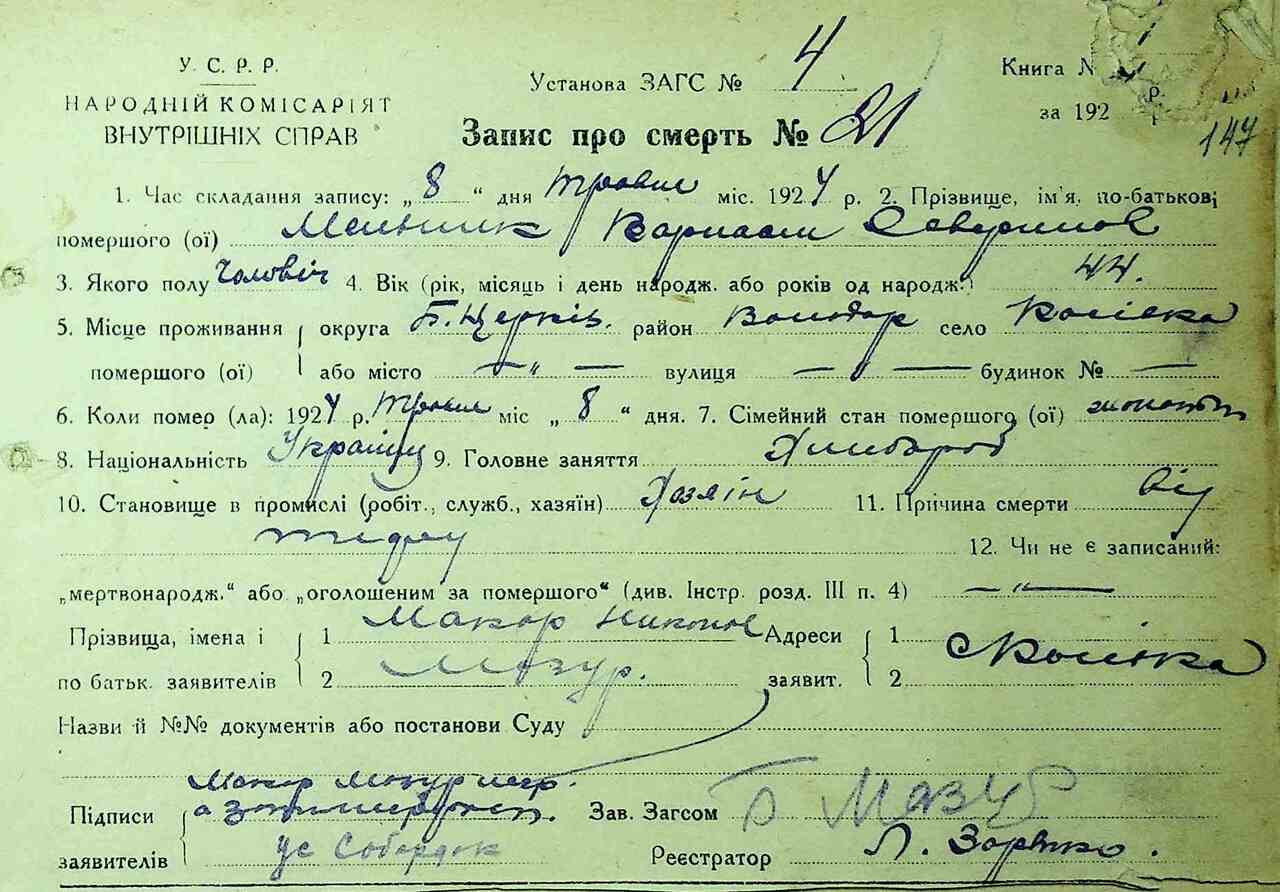 У. С. Р. Р.
НАРОДНІЙ КОМІСАРІЯТ
ВНУТРІШНІХ СПРАВ
Установа ЗАГС № 4
Книга №
за 192 р.
147
Запис про смерть № 21
1. Час складання запису: „8“ дня травня міс. 1924 р. 2. Прізвище, ім'я, по-батькові
помершого (ої) Мельник
3. Якого полу Чоловіч 4. Вік (рік, місяць і день народж. або років од народж.) 44.
5. Місце проживання округа Б. Церків. район Володар село
помершого (ої) або місто — „ — вулиця — „ — будинок № —
6. Коли помер (ла): 1924 р. травня міс „8“ дня. 7. Сімейний стан помершого (ої)
8. Національність Українц 9. Головне заняття Хлибороб
10. Становище в промислі (робіт., служб., хазяїн) Хозяін 11. Причина смерти від
тифу 12. Чи не є записаний:
„мертвонародж.“ або „оголошеним за помершого“ (див. Інстр. розд. III п. 4) — „ —
Прізвища, імена і 1 Макар Никонов Адреси 1
по батьк. заявителів 2 Мазур. заявит. 2
Назви й №№ документів або постанови Суду
Макар Мазур
Підписи Зав. Загсом Мазур
заявителів Реєстратор Л.